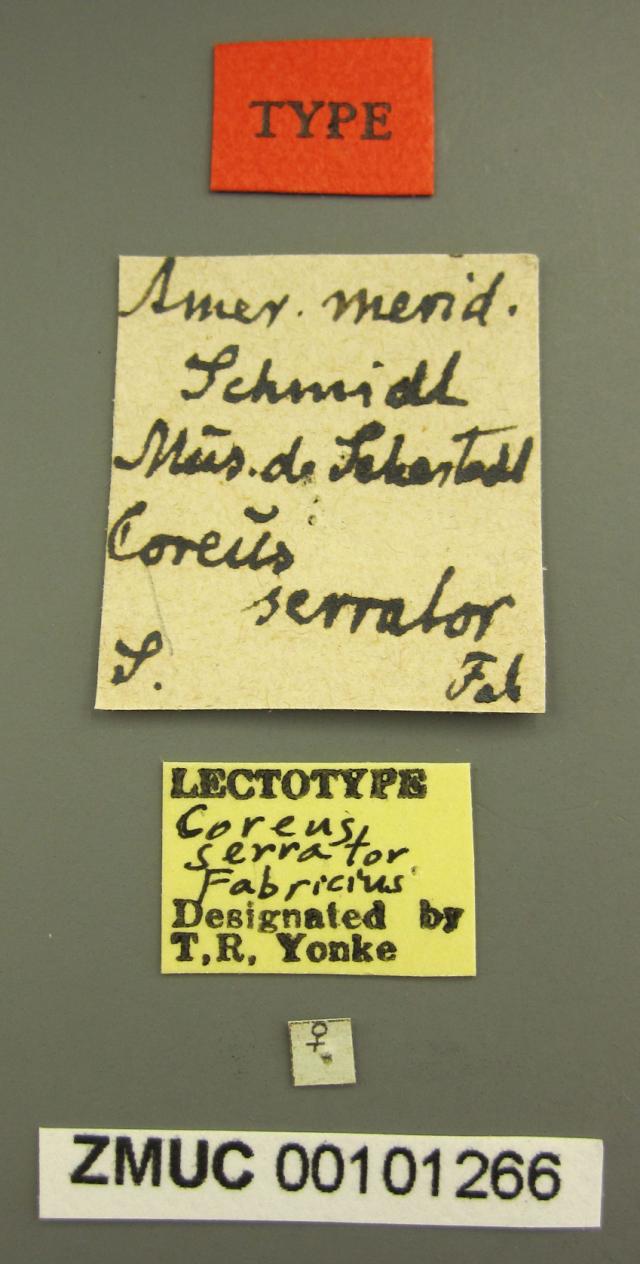 TYPE
Amer. merid.
Schmidt
Mus. de Sehestedt
Coreus
serrator
S. Fab
LECTOTYPE
Coreus
serrator
Fabricius
Designated by
T.R. Yonke
♀
ZMUC 00101266